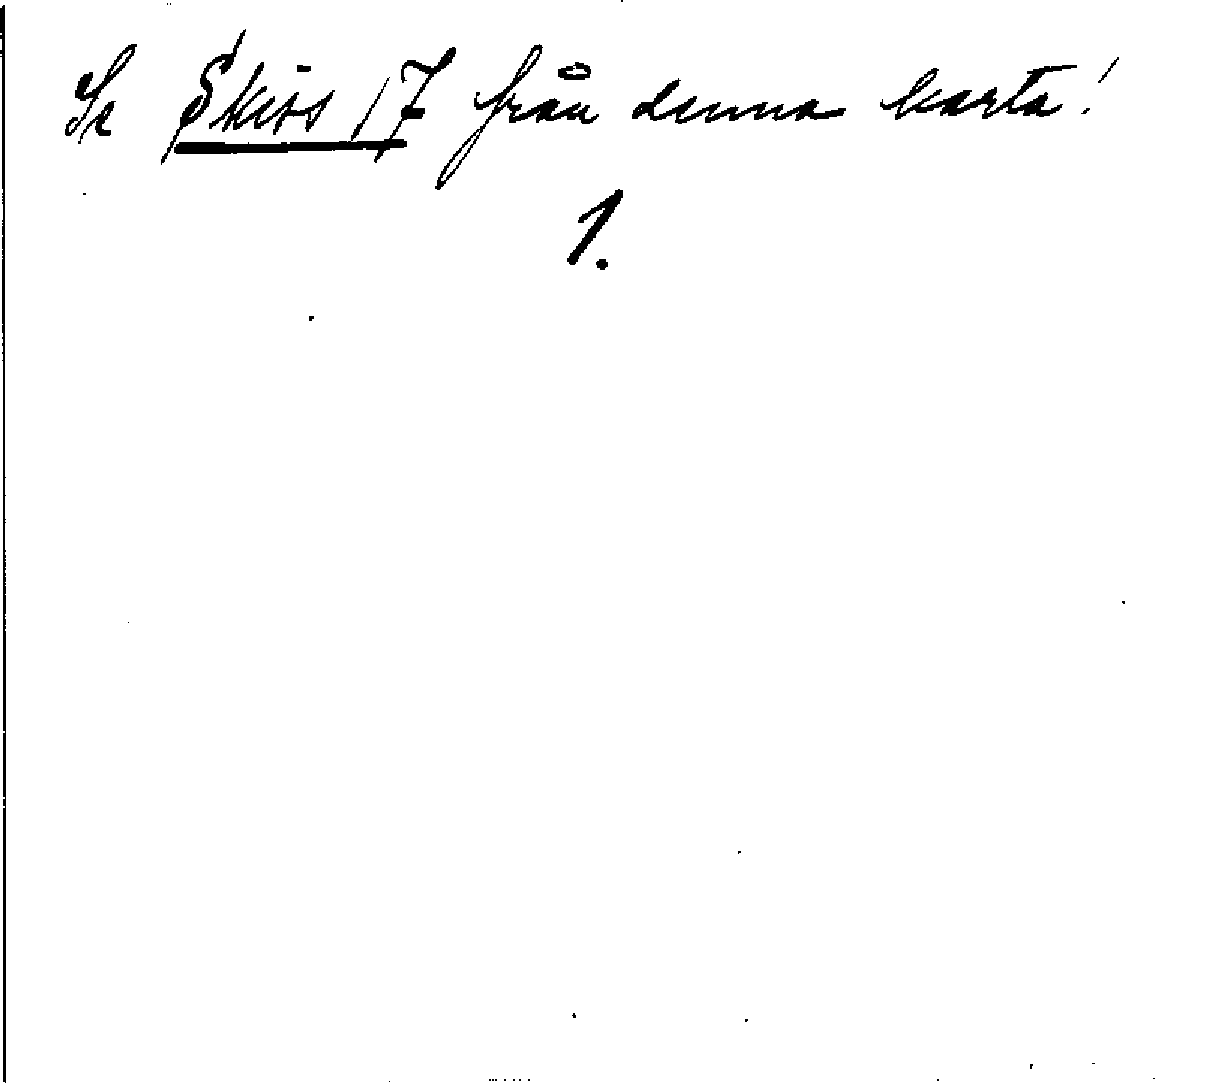 Se Skiss 17 från denna karta!
1.